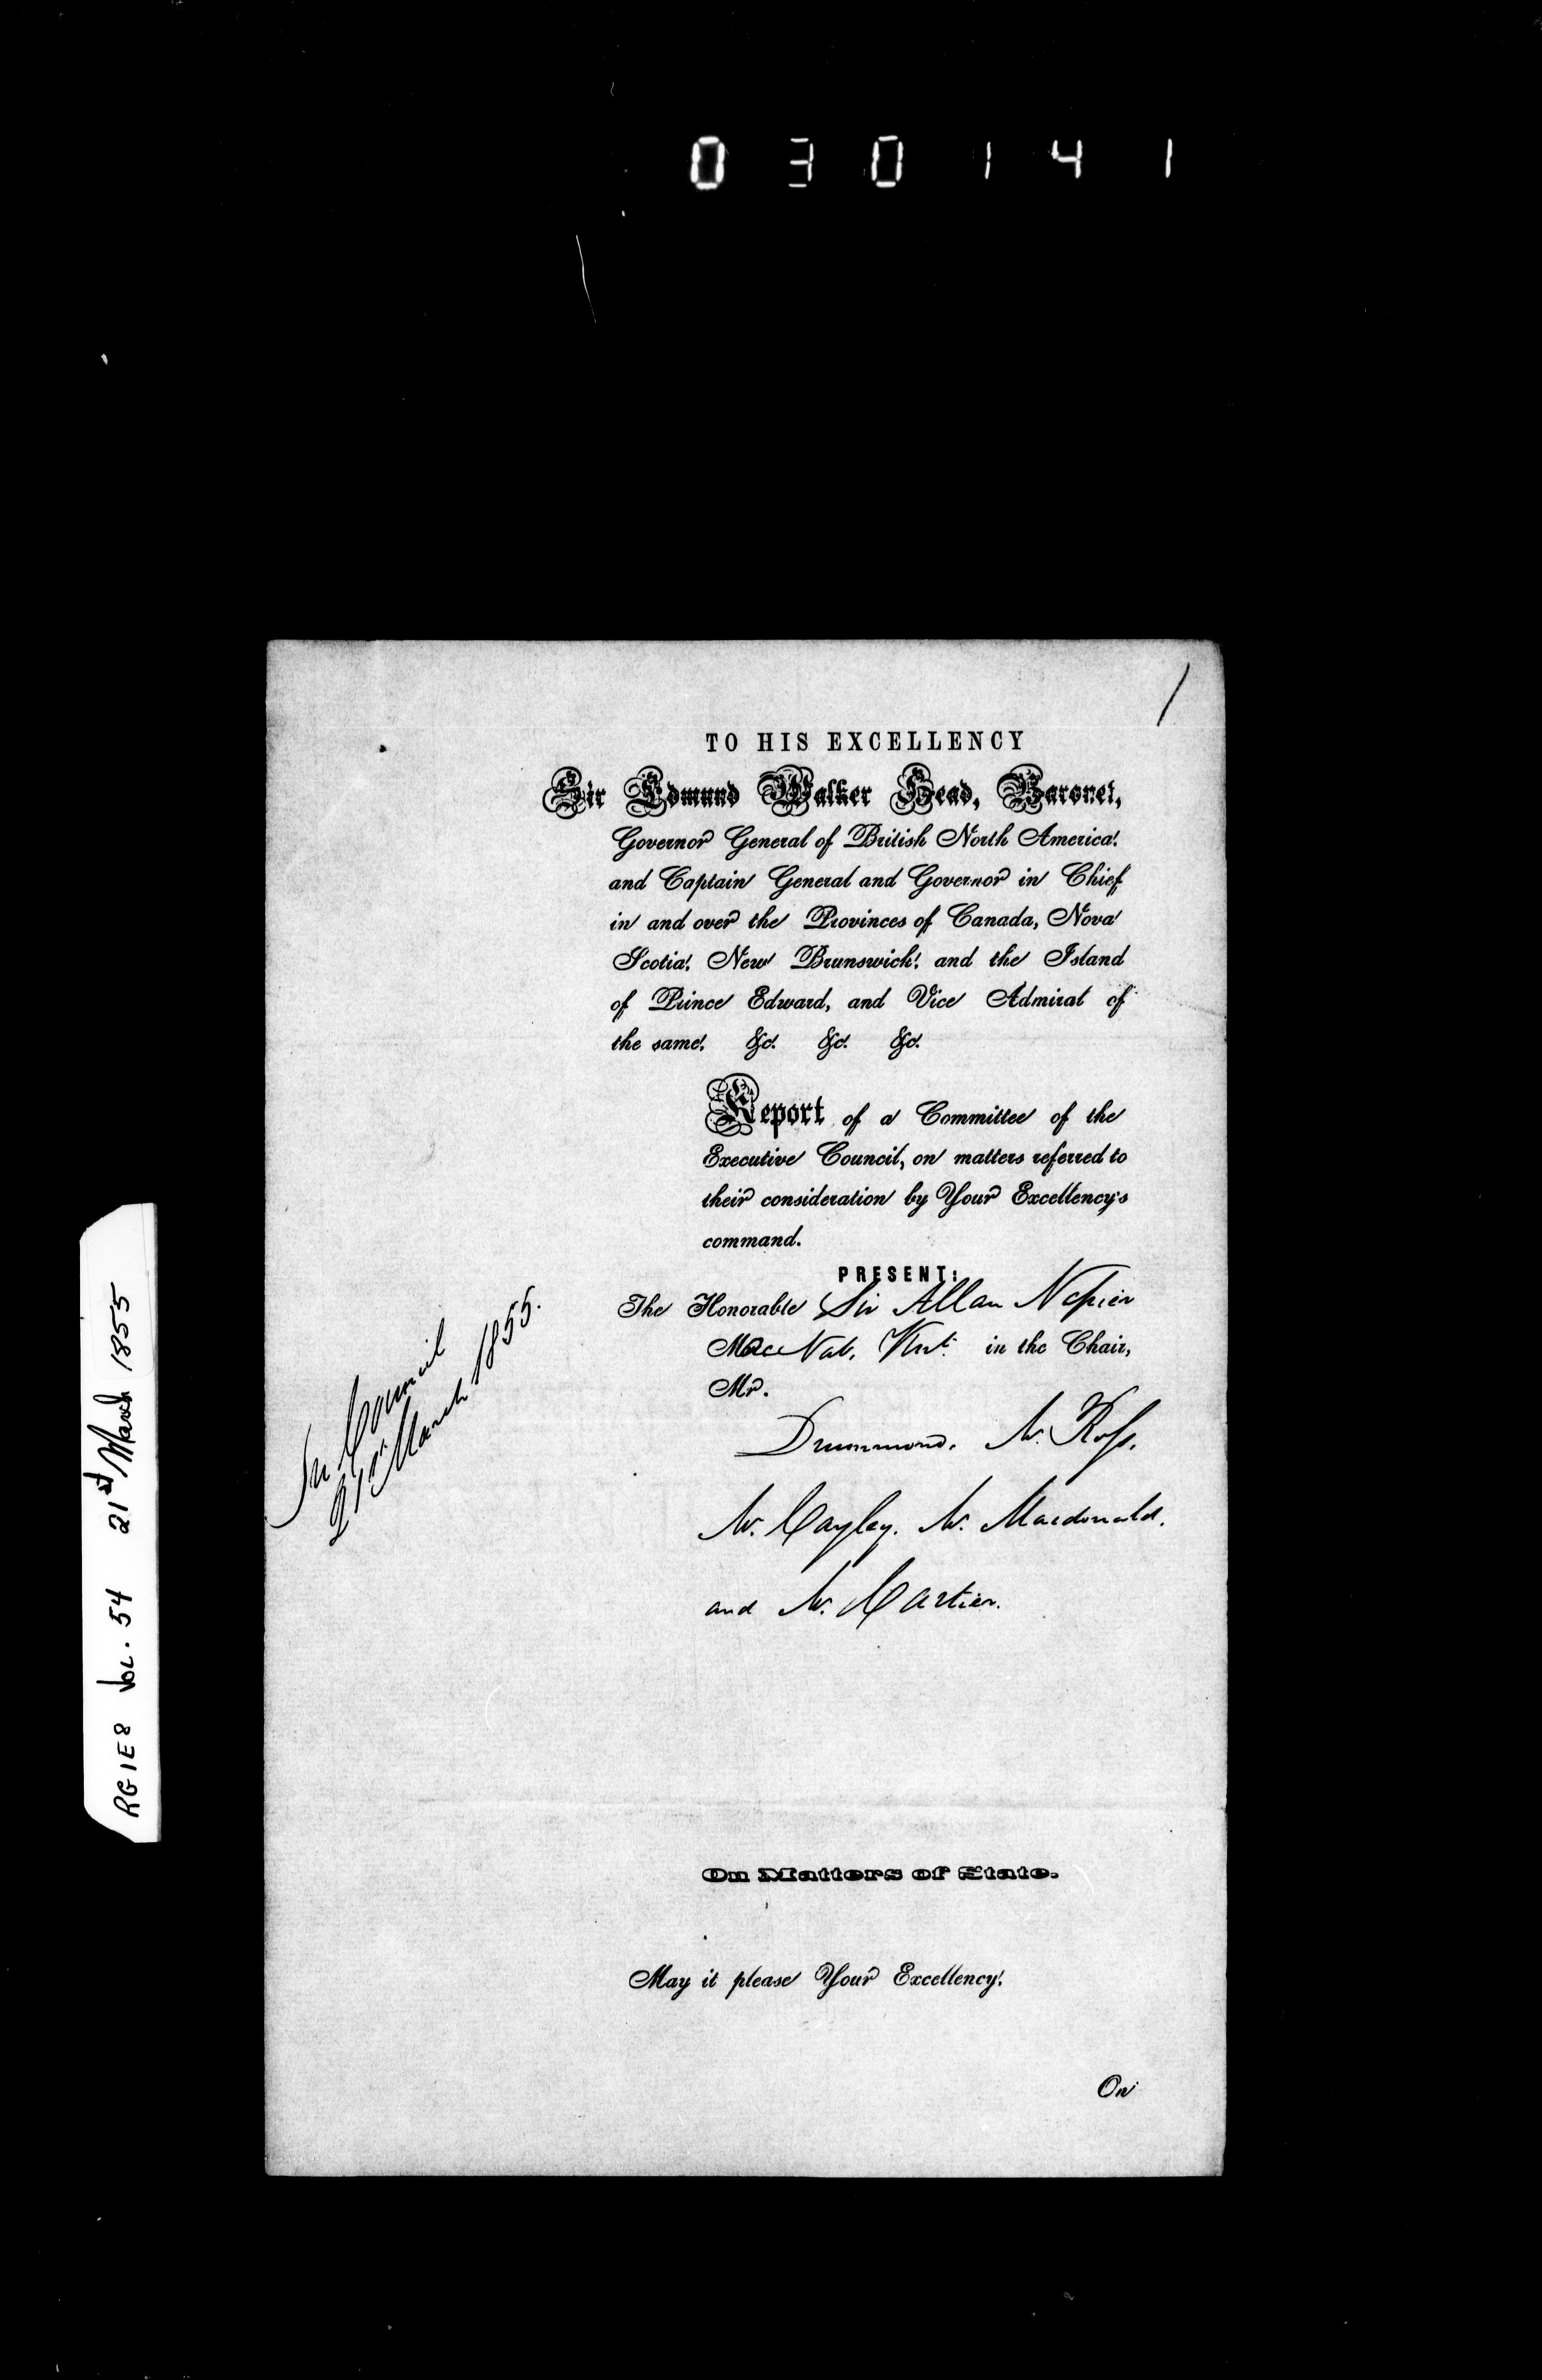 0 3 0 1 4 1
/
TO HIS EXCELLENCY
Sir Edmund Walker Head, Baronet,
Governor General of British North America,
and Captain General and Governor in Chief
in and over the Provinces of Canada, Nova
Scotia, New Brunswick, and the Island
of Prince Edward, and Vice Admiral of
the same, &c. &c. &c.
Report of a Committee of the
Executive Council, on matters referred to
their consideration by Your Excellency's
command.
PRESENT:
The Honorable Sir Allan Napier
MacNab, Knt. in the Chair,
Mr.
Drummond. Mr. Ross.
Mr. Cayley. Mr. Macdonald.
and Mr. Cartier.
In Council
21st March 1855.
RG1E8 Vol. 54 21st March 1855
On Matters of State.
May it please Your Excellency,
On